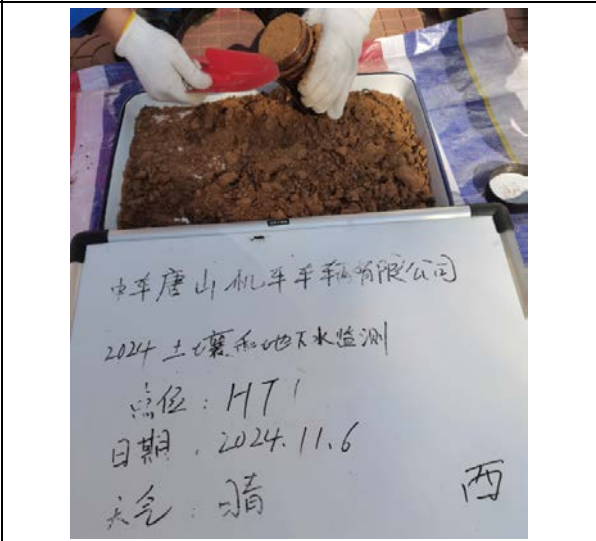 中车唐山机车车辆有限公司
2024 土壤和地下水监测
点位：HT1
日期：2024.11.6
天气：晴
西